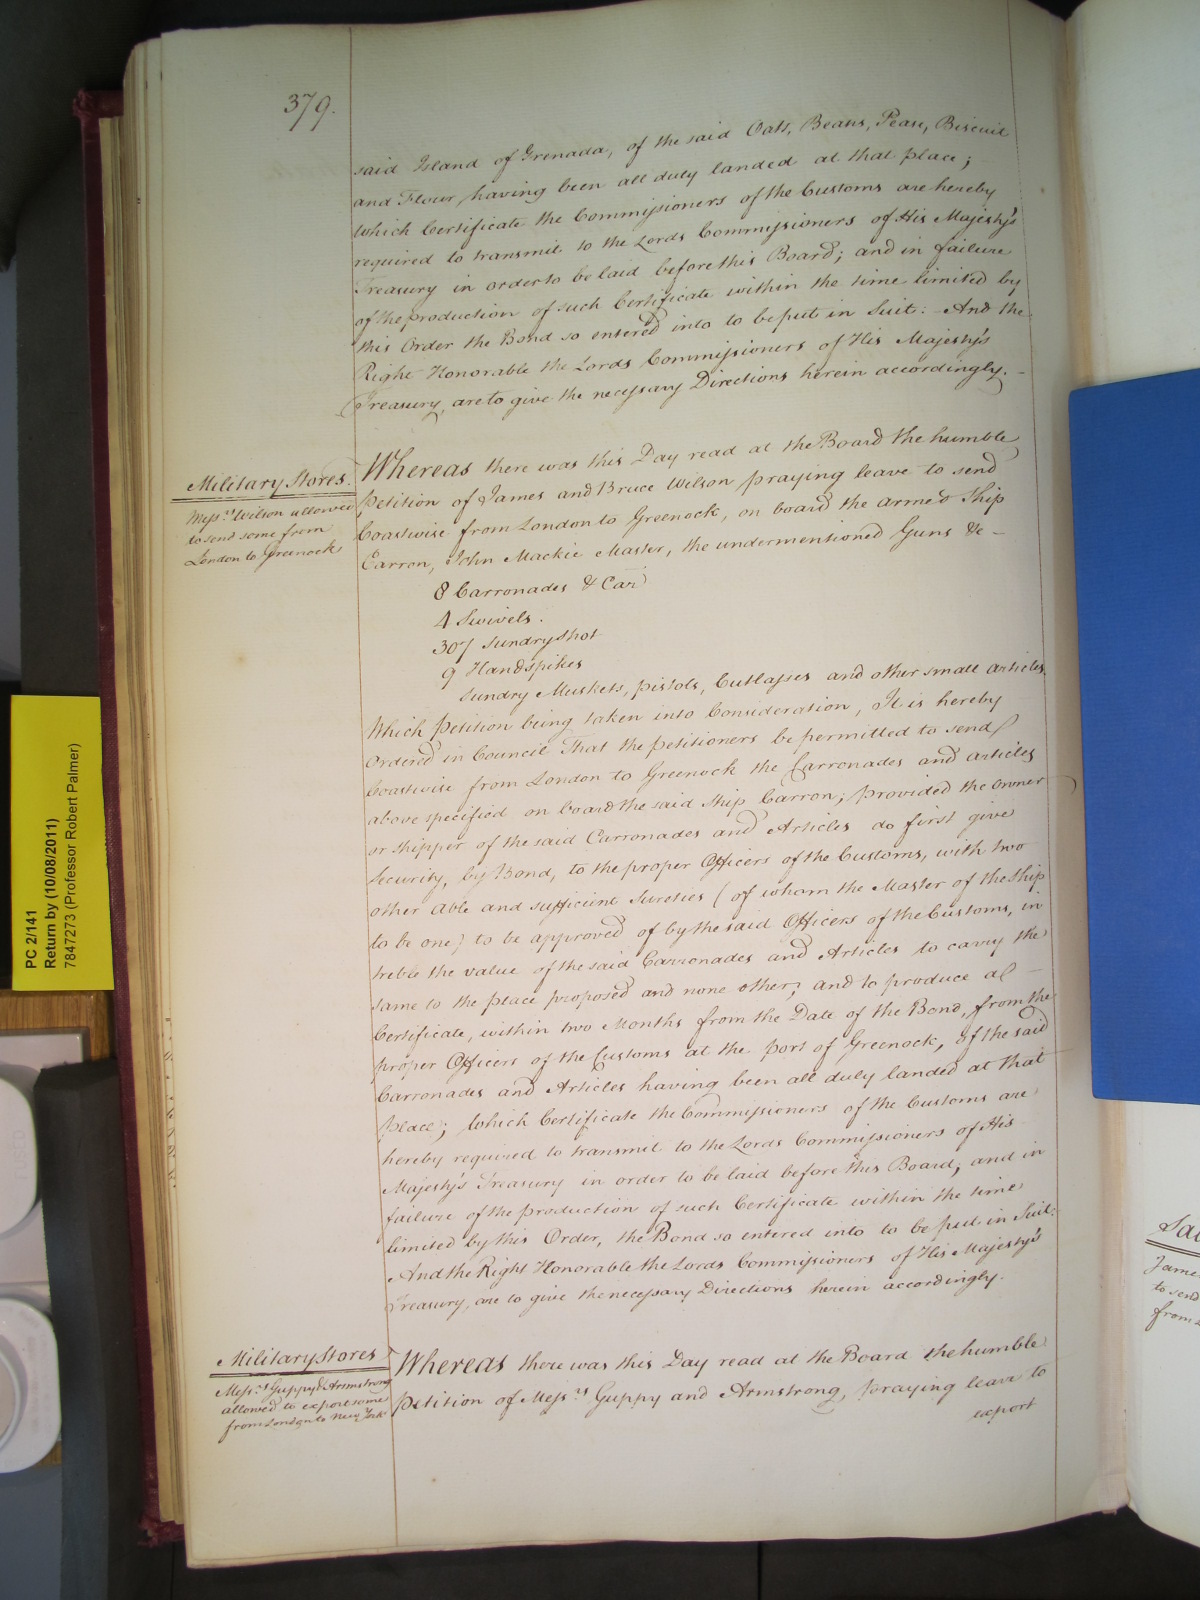 379.
said Island of Grenada, of the said Oats, Beans, Pease, Biscuit
and Flour, having been all duly landed at that place;
which Certificate the Commissioners of the Customs are hereby
required to transmit to the Lords Commissioners of His Majesty's
Treasury in order to be laid before this Board; and in failure
of the production of such Certificate within the time limited by
this Order the Bond so entered into to be put in Suit: And the
Right Honorable the Lords Commissioners of His Majesty's
Treasury, are to give the necessary Directions herein accordingly.
Military Stores.
Mess.rs Wilson allowed
to send some from
London to Greenock
Whereas there was this Day read at the Board the humble
Petition of James and Bruce Wilson praying leave to send
Coastwise from London to Greenock, on board the armed Ship
Carron, John Mackie Master, the undermentioned Guns &c
8 Carronades & Car
4 Swivels.
307 Sundry Shot
9 Handspikes
Sundry Muskets, pistols, Cutlasses and other small articles.
Which Petition being taken into Consideration, It is hereby
Ordered in Council That the petitioners be permitted to send
Coastwise from London to Greenock the Carronades and articles
above specified on board the said Ship Carron; provided the Owner
or Shipper of the said Carronades and Articles do first give
Security, by Bond, to the proper Officers of the Customs, with two
other able and sufficient Sureties (of whom the Master of the Ship
to be one) to be approved of by the said Officers of the Customs, in
treble the value of the said Carronades and Articles to carry the
same to the place proposed and none other; and to produce a
Certificate, within two Months from the Date of the Bond, from the
proper Officers of the Customs at the port of Greenock, of the said
Carronades and Articles having been all duly landed at that
place; Which Certificate the Commissioners of the Customs are
hereby required to transmit to the Lords Commissioners of His
Majesty's Treasury in order to be laid before this Board; and in
failure of the production of such Certificate within the time
limited by this Order, the Bond so entered into to be put in Suit:
And the Right Honorable the Lords Commissioners of His Majesty's
Treasury, are to give the necessary Directions herein accordingly.
Military Stores
Mess.rs Guppy & Armstrong
allowed to export some
from London to New York
Whereas there was this Day read at the Board the humble
Petition of Mess.rs Guppy and Armstrong, praying leave to
export
PC 2/141
Return by (10/08/2011)
7847273 (Professor Robert Palmer)
Jame
to send
from